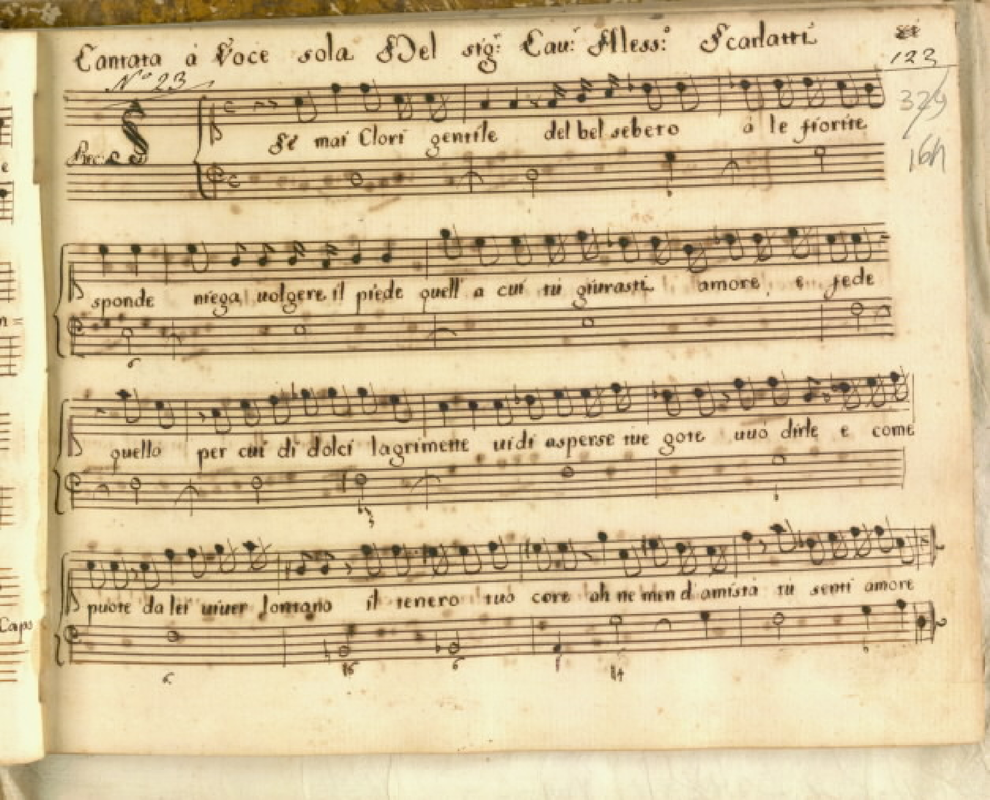 Cantata à Voce sola Del sig: Cau: Aless: Scarlatti
123
N° 23
329
164
Rec:
Se mai Clori gentile del bel sebeto à le fiorite
sponde niega uolgere il piede quell a cui tu giurasti amore e fede
6
quello per cui di dolci lagrimette uidi asperse tue gote uuò dirle e come
puote da lei uiuer lontano il tenero tuo core ah ne men d amistà tu senti amore
6 6
Capo